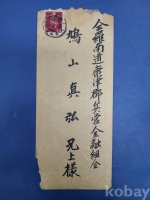 全羅南道康津郡兵營金融組合
鳩山真弘 兄上様
kobay